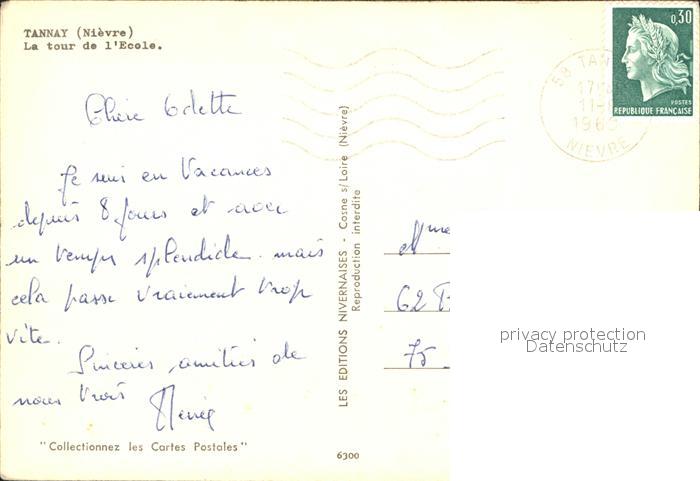 TANNAY (Nièvre)
La tour de l'Ecole.
0,30
POSTES
REPUBLIQUE FRANÇAISE
58 TAN
11
196
NIEVRE
Chère Odette
Je suis en Vacances
depuis 8 jours et avec
un temps splendide. mais
cela passe vraiment trop
vite.
Sincères amitiés de
nous trois
LES EDITIONS NIVERNAISES - Cosne s/Loire (Nièvre)
Reproduction interdite
Mme
62
75
privacy protection
Datenschutz
"Collectionnez les Cartes Postales"
6300